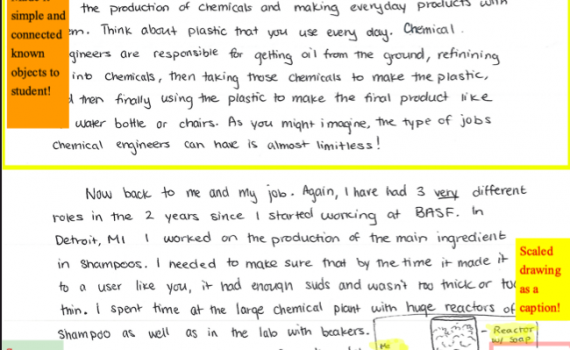 simple and
connected
known
objects to
student!
the production of chemicals and making everyday products with
Think about plastic that you use every day. Chemical
are responsible for getting oil from the ground, refinining
chemicals, then taking those chemicals to make the plastic,
then finally using the plastic to make the final product like
water bottle or chairs. As you might imagine, the type of jobs
Chemical engineers can have is almost limitless!
Now back to me and my job. Again, I have had 3 very different
roles in the 2 years since I started working at BASF. In
Detroit, MI I worked on the production of the main ingredient
in shampoos. I needed to make sure that by the time it made it
to a user like you, it had enough suds and wasn't too thick or too
thin. I spent time at the large chemical plant with huge reactors of
Shampoo as well as in the lab with beakers.
Scaled
drawing
as a
caption!
- Reactor
w/ soap
Me